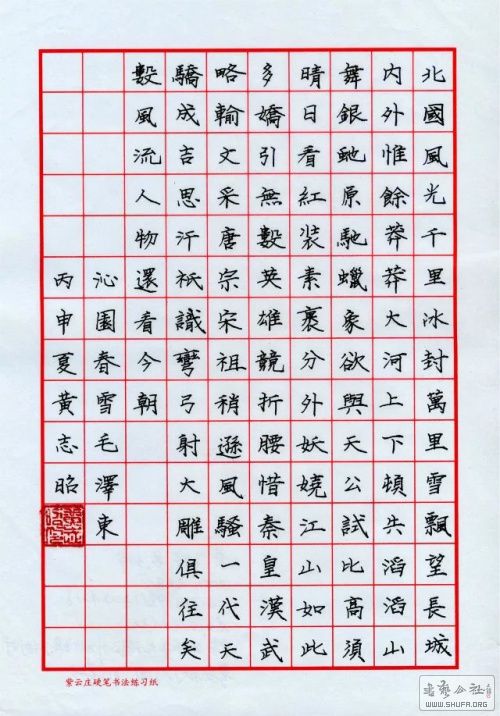 北國風光千里冰封萬里雪飄望長城
内外惟餘莽莽大河上下頓失滔滔山
舞銀虵原馳蠟象欲與天公試比高須
晴日看紅裝素裹分外妖嬈江山如此
多嬌引無數英雄競折腰惜秦皇漢武
略輸文采唐宗宋祖稍遜風騷一代天
驕成吉思汗祇識彎弓射大雕俱往矣
數風流人物還看今朝
沁園春雪毛澤東
丙申夏黃志昭
紫云庄硬笔书法练习纸
書藝公社
WWW.SHUFA.ORG